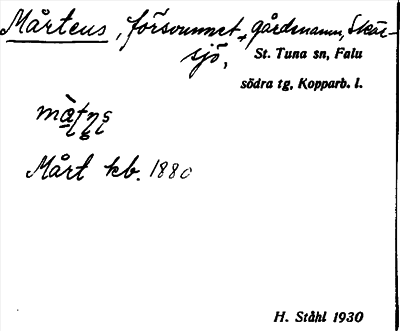 Mårtens, försvunnet gårdsnamn, Skär-
sjö,
St. Tuna sn, Falu
södra tg, Kopparb. l.
Mårt kb. 1880
H. Ståhl 1930